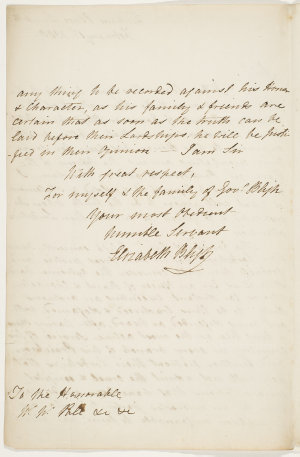 any thing to be recorded against his Honor
& Character, as his family & friends are
certain that as soon as the truth can be
laid before their Lordships, he will be Justi-
fied in their Opinion — I am Sir
With great respect,
For myself & the family of Govr. Bligh
Your most Obedient
Humble Servant
Elizabeth Bligh
To the Honorable
Wm. Wm. Pole &c &c